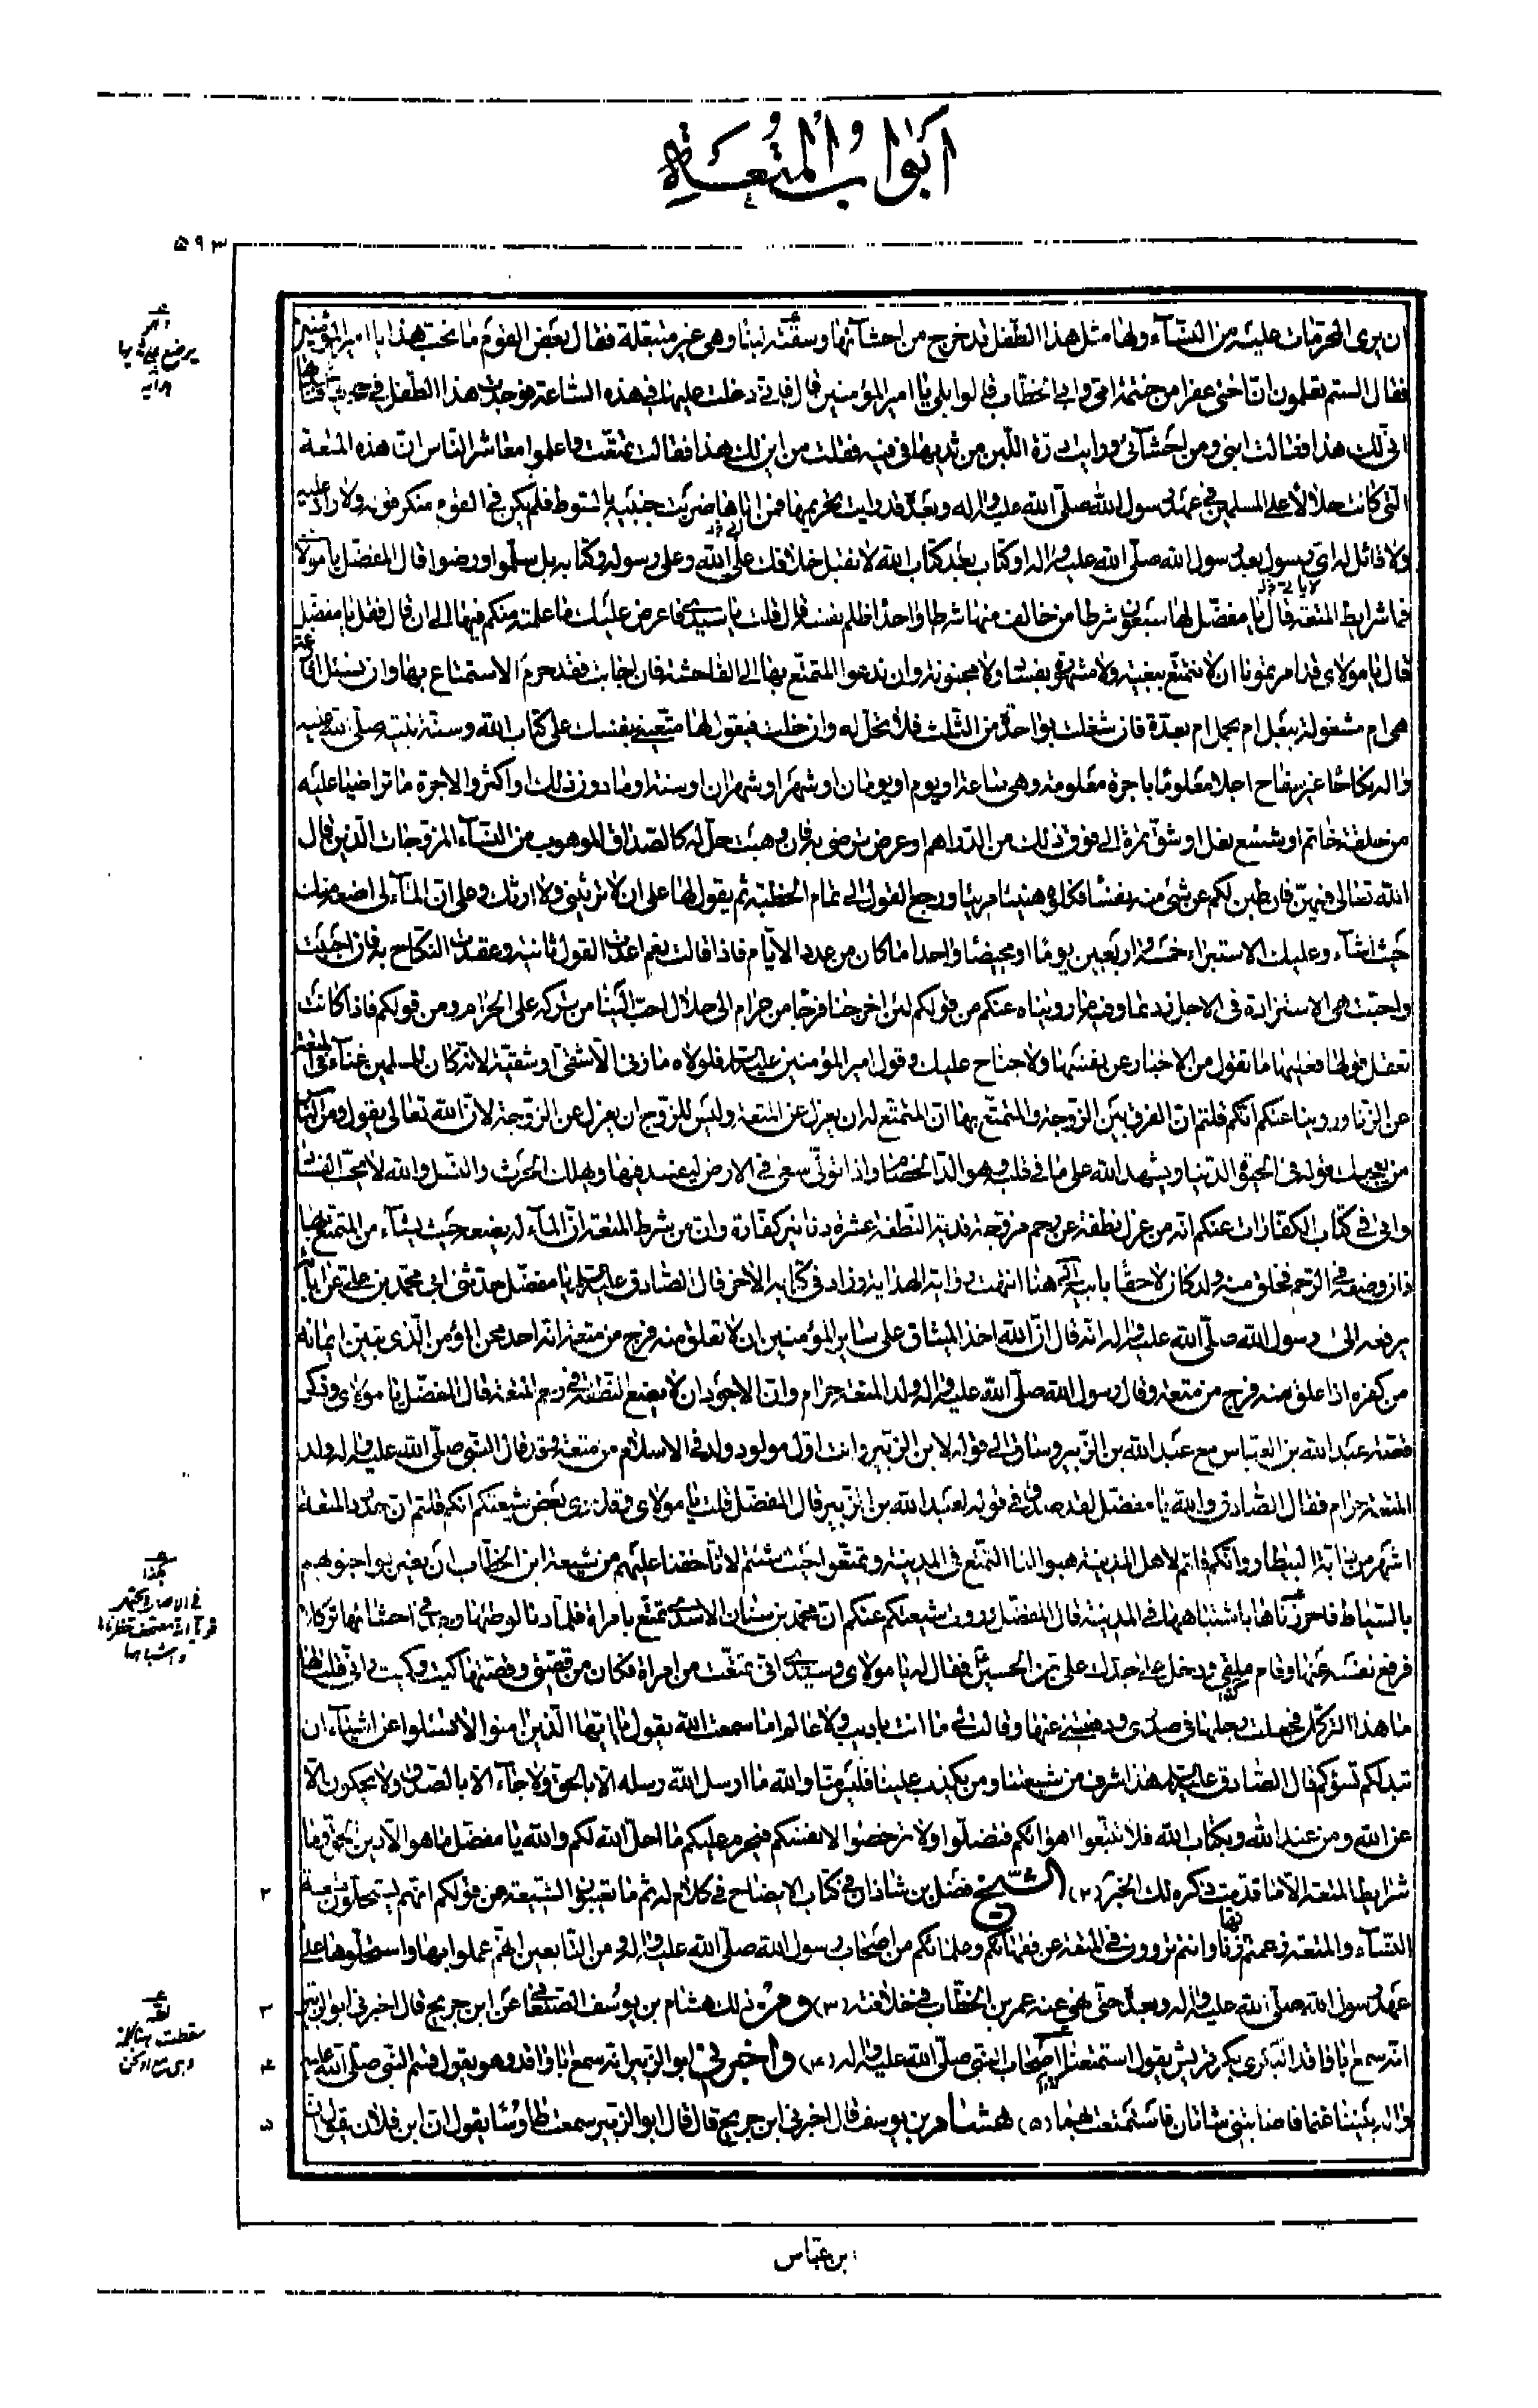 ابواب المتعة
٥٩٣
ان يرى المحرمات عليه من النساء ولها مثل هذا الطفل قد خرج من احشائها وسقته لبنا وهي غير متبعلة فقال بعض القوم ما نحب هذا يا امير المؤمنين
فقال الستم تعلمون ان اختي عفرا من حنتمة امي وابي الخطاب قالوا بلى يا امير المؤمنين قال فاني دخلت عليها في هذه الساعة فوجدت هذا الطفل في حجرها فناشدتها
انى لك هذا فقالت ابني ومن احشائي ورايت درة اللبن من ثديها في فيه فقلت من اين لك هذا فقالت تمتعت واعلموا معاشر الناس ان هذه المتعة
التي كانت حلالا على المسلمين في عهد رسول الله صلى الله عليه واله وبعده قد رايت تحريمها فمن اتاها ضربت جنبيه بالسوط فلم يكن في القوم منكر قوله ولا راد عليه
ولا قائل له اي رسول بعد رسول الله صلى الله عليه واله او كتاب بعد كتاب الله لا نقبل خلافك على الله وعلى رسوله وكتابه بل سلموا ورضوا قال المفضل يا مولاي
فما شرايط المتعة قال يا مفضل لها سبعون شرطا من خالف منها شرطا واحدا ظلم نفسه قال قلت يا سيدي فاعرض عليك ما علمته منكم فيها الى ان قال قل يا مفضل
قال يا مولاي قد امرتمونا ان لا نتمتع ببغية ولا مشهورة بفساد ولا مجنونة وان ندعو المتمتع بها الى الفاحشة فان اجابت فقد حرم الاستمتاع بها وان نسئل افارغة
هي ام مشغولة ببعل ام بحمل ام بعدة فان شغلت بواحدة من الثلث فلا تحل له وان خلت فيقول لها متعيني نفسك على كتاب الله وسنة نبيه صلى الله عليه
واله نكاحا غير سفاح اجلا معلوما باجرة معلومة وهي ساعة او يوم او يومان او شهر او شهران او سنة او ما دون ذلك او اكثر والاجرة ما تراضيا عليه
من حلقة خاتم او شسع نعل او شق تمرة الى فوق ذلك من الدراهم او عرض ترضى به فان وهبت حل له كالصداق الموهوب من النساء المزوجات الذين قال
الله تعالى فيهن فان طبن لكم عن شيء منه نفسا فكلوه هنيئا مريئا ورجع القول الى تمام الخطبة ثم يقول لها على ان لا ترثيني ولا ارثك وعلى ان الماء لي اضعه منك
حيث اشاء وعليك الاستبراء خمسة واربعين يوما او محيضا واحدا ما كان من عدد الايام فاذا قالت نعم اعدت القول ثانية وعقدت النكاح به فان احببت
واحبت هي الاستزادة في الاجل زدتما وفيه ما رويناه عنكم من قولكم لئن اخرجنا فرجا من حرام الى حلال احب الينا من تركه على الحرام ومن قولكم فاذا كانت
تعقل قولها فعليها ما تقول من الاخبار عن نفسها ولا جناح عليك وقول امير المؤمنين عليه السلام فلولاه ما زنى الا شقي او شقية لانه كان للمسلمين غناء في المتعة
عن الزنا وروينا عنكم انكم قلتم ان الفرق بين الزوجة والمتمتع بها ان المتمتع له ان يعزل عن المتعة وليس للزوج ان يعزل عن الزوجة لان الله تعالى يقول ومن الناس
من يعجبك قوله في الحيوة الدنيا ويشهد الله على ما في قلبه وهو الد الخصام واذا تولى سعى في الارض ليفسد فيها ويهلك الحرث والنسل والله لا يحب الفساد
واتى في كتاب الكفارات عنكم انه من عزل نطفة عن رحم مزوجة فدية النطفة عشرة دنانير كفارة وان من شرط المتعة ان الماء له يضعه حيث يشاء من المتمتع بها
فان وضعه في الرحم فخلق منه ولد كان لاحقا بابيه هنا انتهت رواية الهداية وزاد في كتابه الاخر قال الصادق عليه السلام يا مفضل حدثني ابي محمد بن علي عن ابائه
يرفعه الى رسول الله صلى الله عليه واله انه قال ان الله اخذ الميثاق على ساير المؤمنين ان لا تعلق منه فرج من متعة انه احد محن المؤمن الذي تبين ايمانه
من كفره اذا علق منه فرج من متعة وقال رسول الله صلى الله عليه واله ولد المتعة حرام وان الاجود ان لا يضع النطفة في رحم المتعة قال المفضل يا مولاي وذكر
قصة عبد الله بن العباس مع عبد الله بن الزبير وساق الى قوله لابن الزبير وانت اول مولود ولد في الاسلام من متعة وقد قال النبي صلى الله عليه واله ولد
المتعة حرام فقال الصادق والله يا مفضل لقد صدق في قوله لعبد الله بن الزبير قال المفضل قلت يا مولاي وقد روى بعض شيعتكم انكم قلتم ان حدود المتعة
اشهر من دابة البيطار وانكم قلتم لاهل المدينة هبوا لنا التمتع في المدينة وتمتعوا حيث شئتم لانا خفنا عليهم من شيعة ابن الخطاب ان يضربوا جنوبهم
بالسياط فاحرزناها باشباهها في المدينة قال المفضل وروت شيعتكم عنكم ان محمد بن سنان الاسدي تمتع بامراة فلما دنا لوطئها وجد في احشائها تركلا
فرفع نفسه عنها وقام ملقى ودخل على جدك علي بن الحسين فقال له يا مولاي وسيدي اني تمتعت من امراة فكان من قصتي وقصتها كيت وكيت واني قلت لها
ما هذا التركل فجعلت رجلها في صدري ودفعتني عنها وقالت لي ما انت باديب ولا عالم اما سمعت الله يقول يا ايها الذين امنوا لا تسئلوا عن اشياء ان
تبد لكم تسؤكم قال الصادق عليه السلام هذا شرف من شيعتنا ومن يكذب علينا فليس منا والله ما ارسل الله رسله الا بالحق ولا جاء الا بالصدق ولا يحكون الا
عن الله ومن عند الله وبكتاب الله فلا تتبعوا اهوائكم فتضلوا ولا ترخصوا لانفسكم فيحرم عليكم ما احل الله لكم والله يا مفضل ما هو الا دين الحق وما
شرايط المتعة الا ما قدمت ذكره لك الخبر (٢) الشيخ فضل بن شاذان في كتاب الايضاح في كلام له ثم ما تعيبون الشيعة من قولكم انهم يستحلون متعة
النساء والمتعة زعمتم زنا وانتم تروون في المتعة عن فقهائكم وعلمائكم من اصحاب رسول الله صلى الله عليه واله ومن التابعين انهم عملوا بها واستحلوها على
عهد رسول الله صلى الله عليه واله وبعده حتى نهى عنه عمر بن الخطاب في خلافته (٣) ومن ذلك هشام بن يوسف الصنعاني عن ابن جريج قال اخبرني ابو الزبير
انه سمع ابا واقد البكري بكر قريش يقول استمتعنا اصحاب النبي صلى الله عليه واله (٤) واخبرني ابو الزبير انه سمع ابا واقد وهو يقول قسم النبي صلى الله عليه
واله بيننا غنما فاصابتني شاتان فاستمتعت بهما (٥) هشام بن يوسف قال اخبرني ابن جريج قال قال ابو الزبير سمعت طاوسا يقول ان ابن فلان يقول ان
ابن عباس
٢
٣
٤
٥